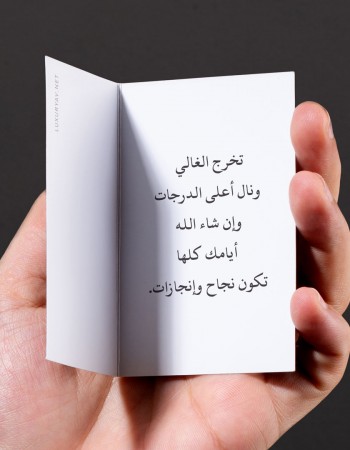 تخرج الغالي
ونال أعلى الدرجات
وإن شاء الله
أيامك كلها
تكون نجاح وإنجازات.